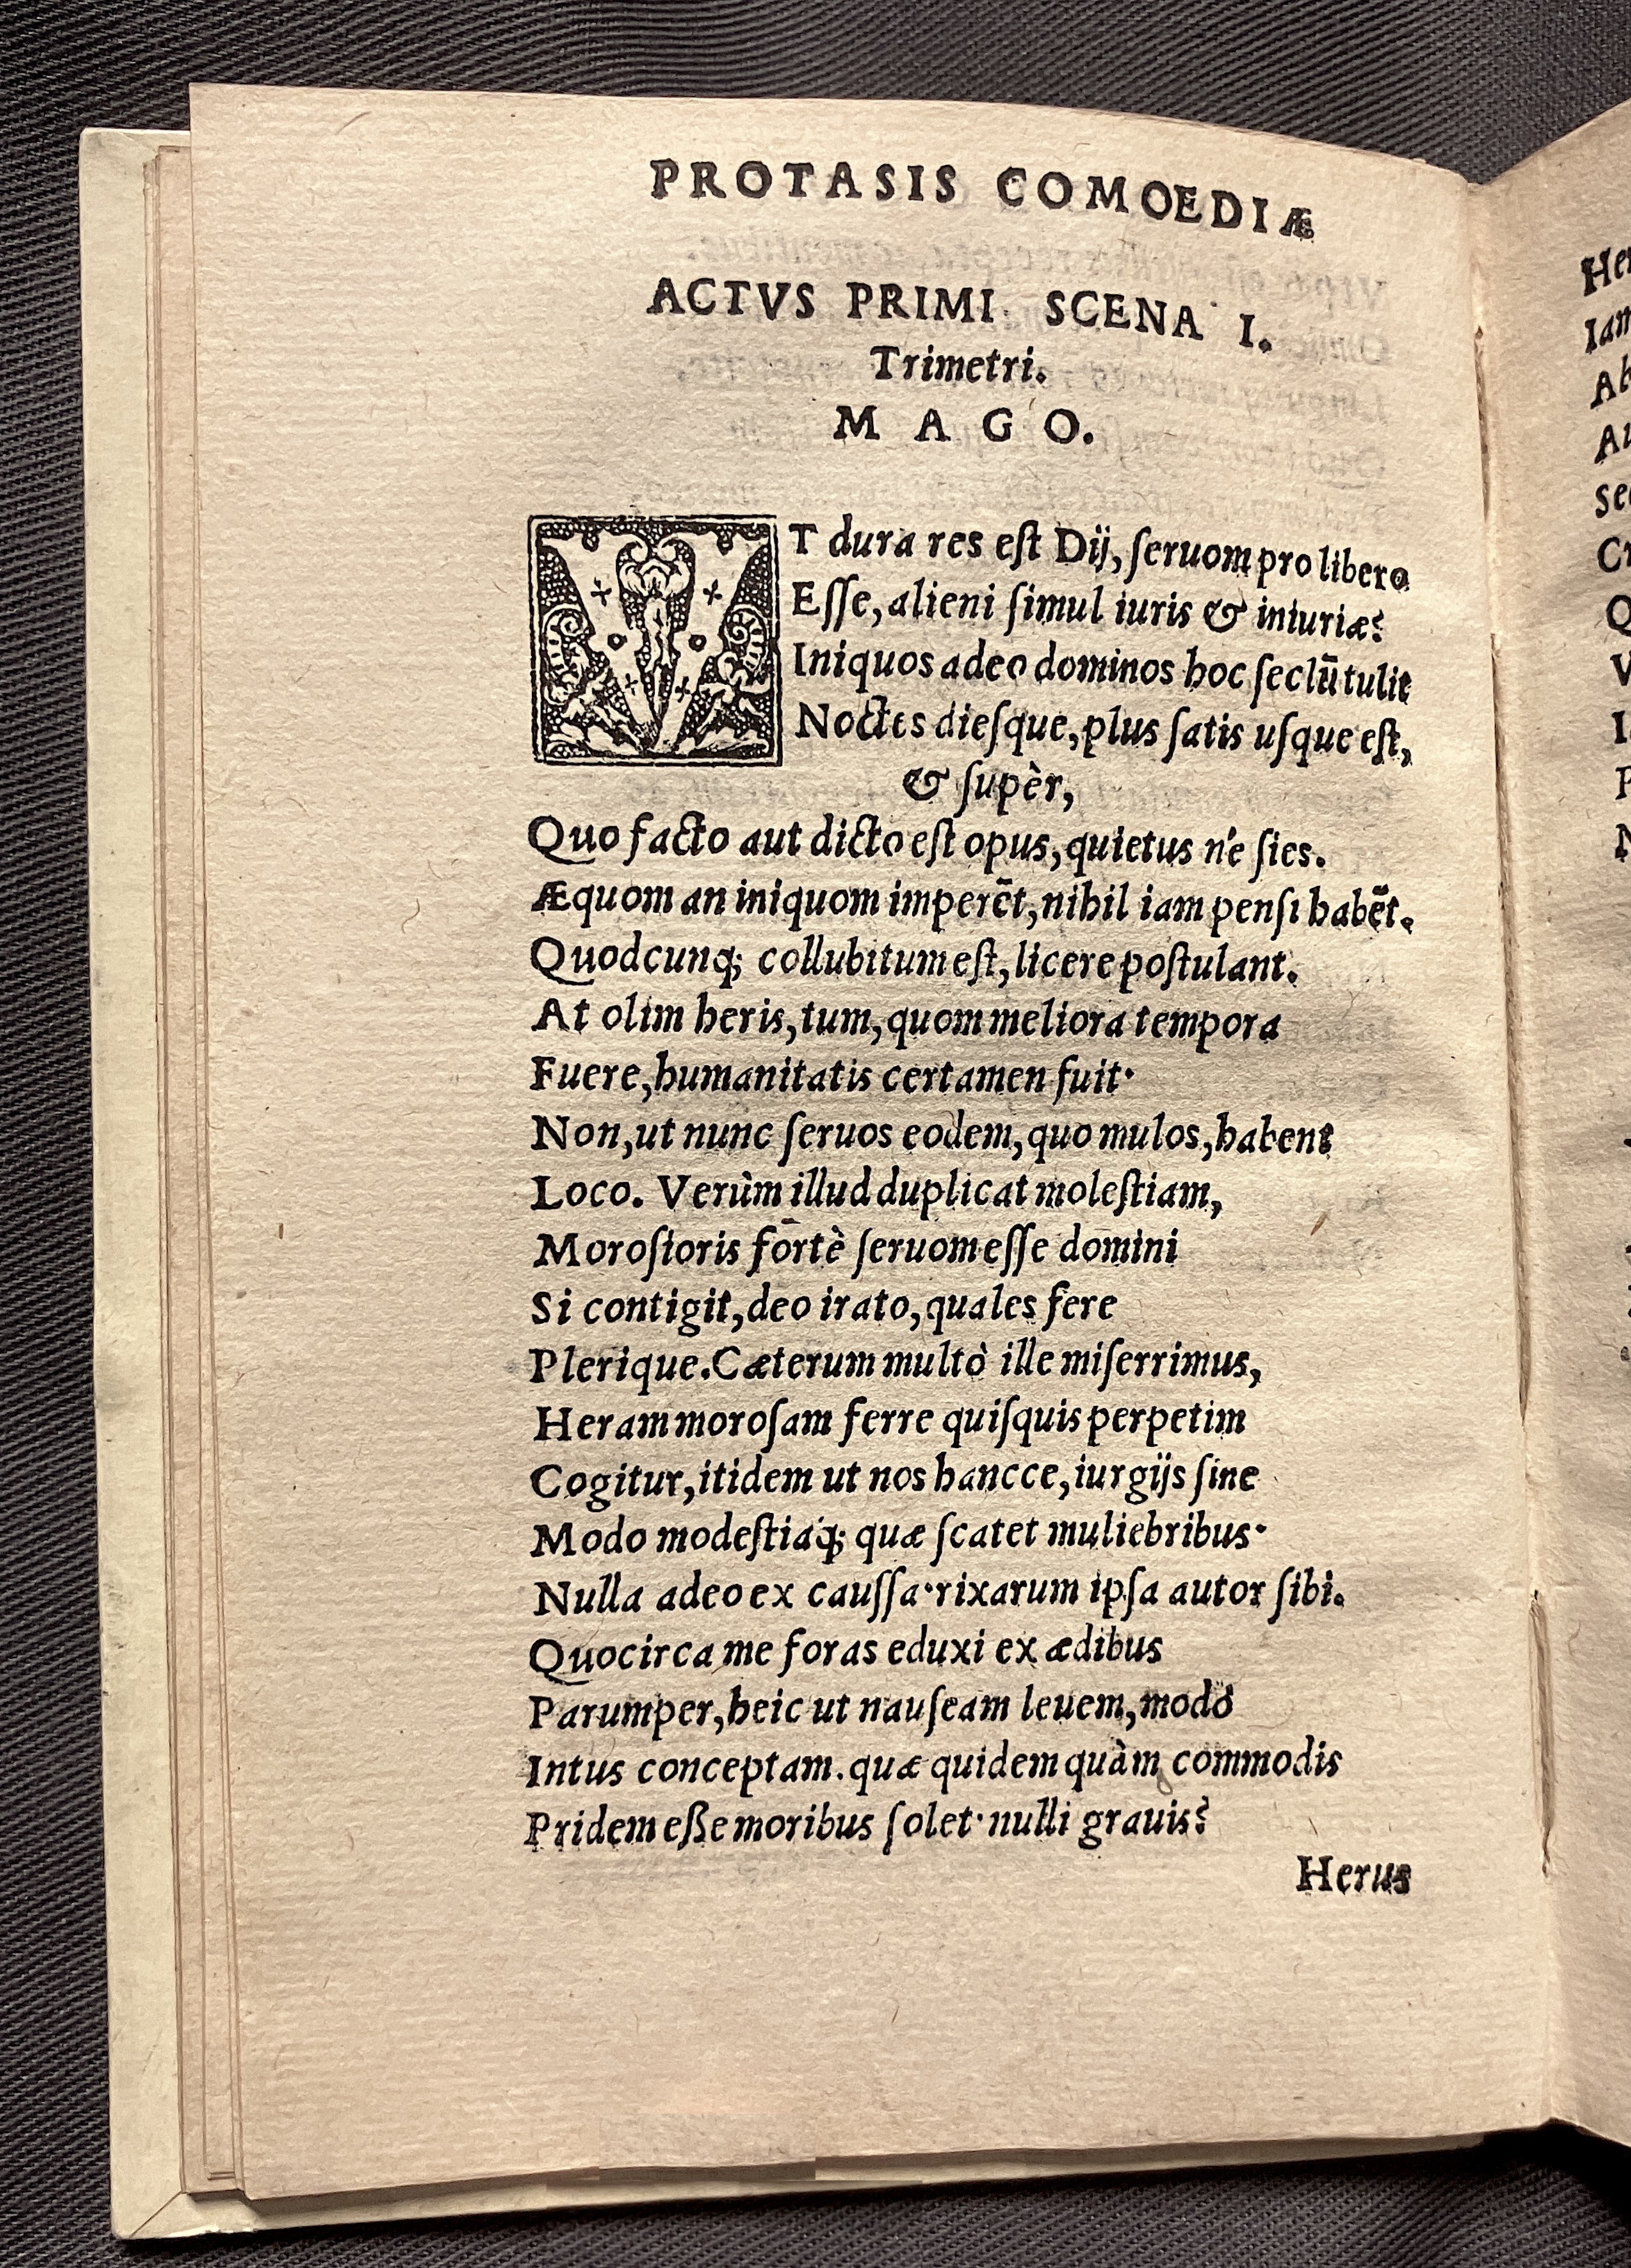 PROTASIS COMOEDIÆ
ACTVS PRIMI SCENA I.
Trimetri.
MAGO.
VT dura res est Dij, ſeruom pro libero
Eſſe, alieni ſimul iuris & iniuriæ?
Iniquos adeo dominos hoc ſeclū tulit
Noctes dieſque, plus ſatis uſque eſt,
& ſupèr,
Quo facto aut dicto eſt opus, quietus n'e ſies.
Æquom an iniquom imperēt, nihil iam penſi habēt.
Quodcunq; collubitum eſt, licere poſtulant.
At olim heris, tum, quom meliora tempora
Fuere, humanitatis certamen fuit·
Non, ut nunc ſeruos eodem, quo mulos, habent
Loco. Verùm illud duplicat moleſtiam,
Moroſioris fortè ſeruom eſſe domini
Si contigit, deo irato, quales fere
Plerique. Cæterum multò ille miſerrimus,
Heram moroſam ferre quiſquis perpetim
Cogitur, itidem ut nos hancce, iurgijs ſine
Modo modeſtiaq́; quæ ſcatet muliebribus·
Nulla adeo ex cauſſa· rixarum ipſa autor ſibi.
Quocirca me foras eduxi ex ædibus
Parumper, heic ut nauſeam leuem, modò
Intus conceptam. quæ quidem quàm commodis
Pridem eße moribus ſolet· nulli grauis?
Herus
Her
Iam
Q
V
P
N